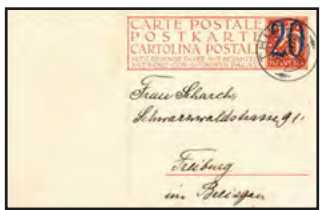 CARTE POSTALE
POSTKARTE
CARTOLINA POSTALE
20
HELVETIA
Frau Scharch,
Schwarzwaldstrasse 91.
Freiburg
im Breisgau